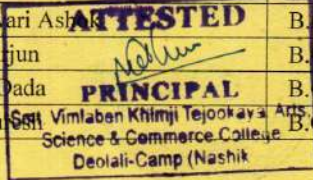 ari Ashok B.
ATTESTED
rjun B.
Dada B.
PRINCIPAL
Smt. Vimlaben Khimji Tejookaya Arts,
Science & Commerce College
Deolali-Camp (Nashik